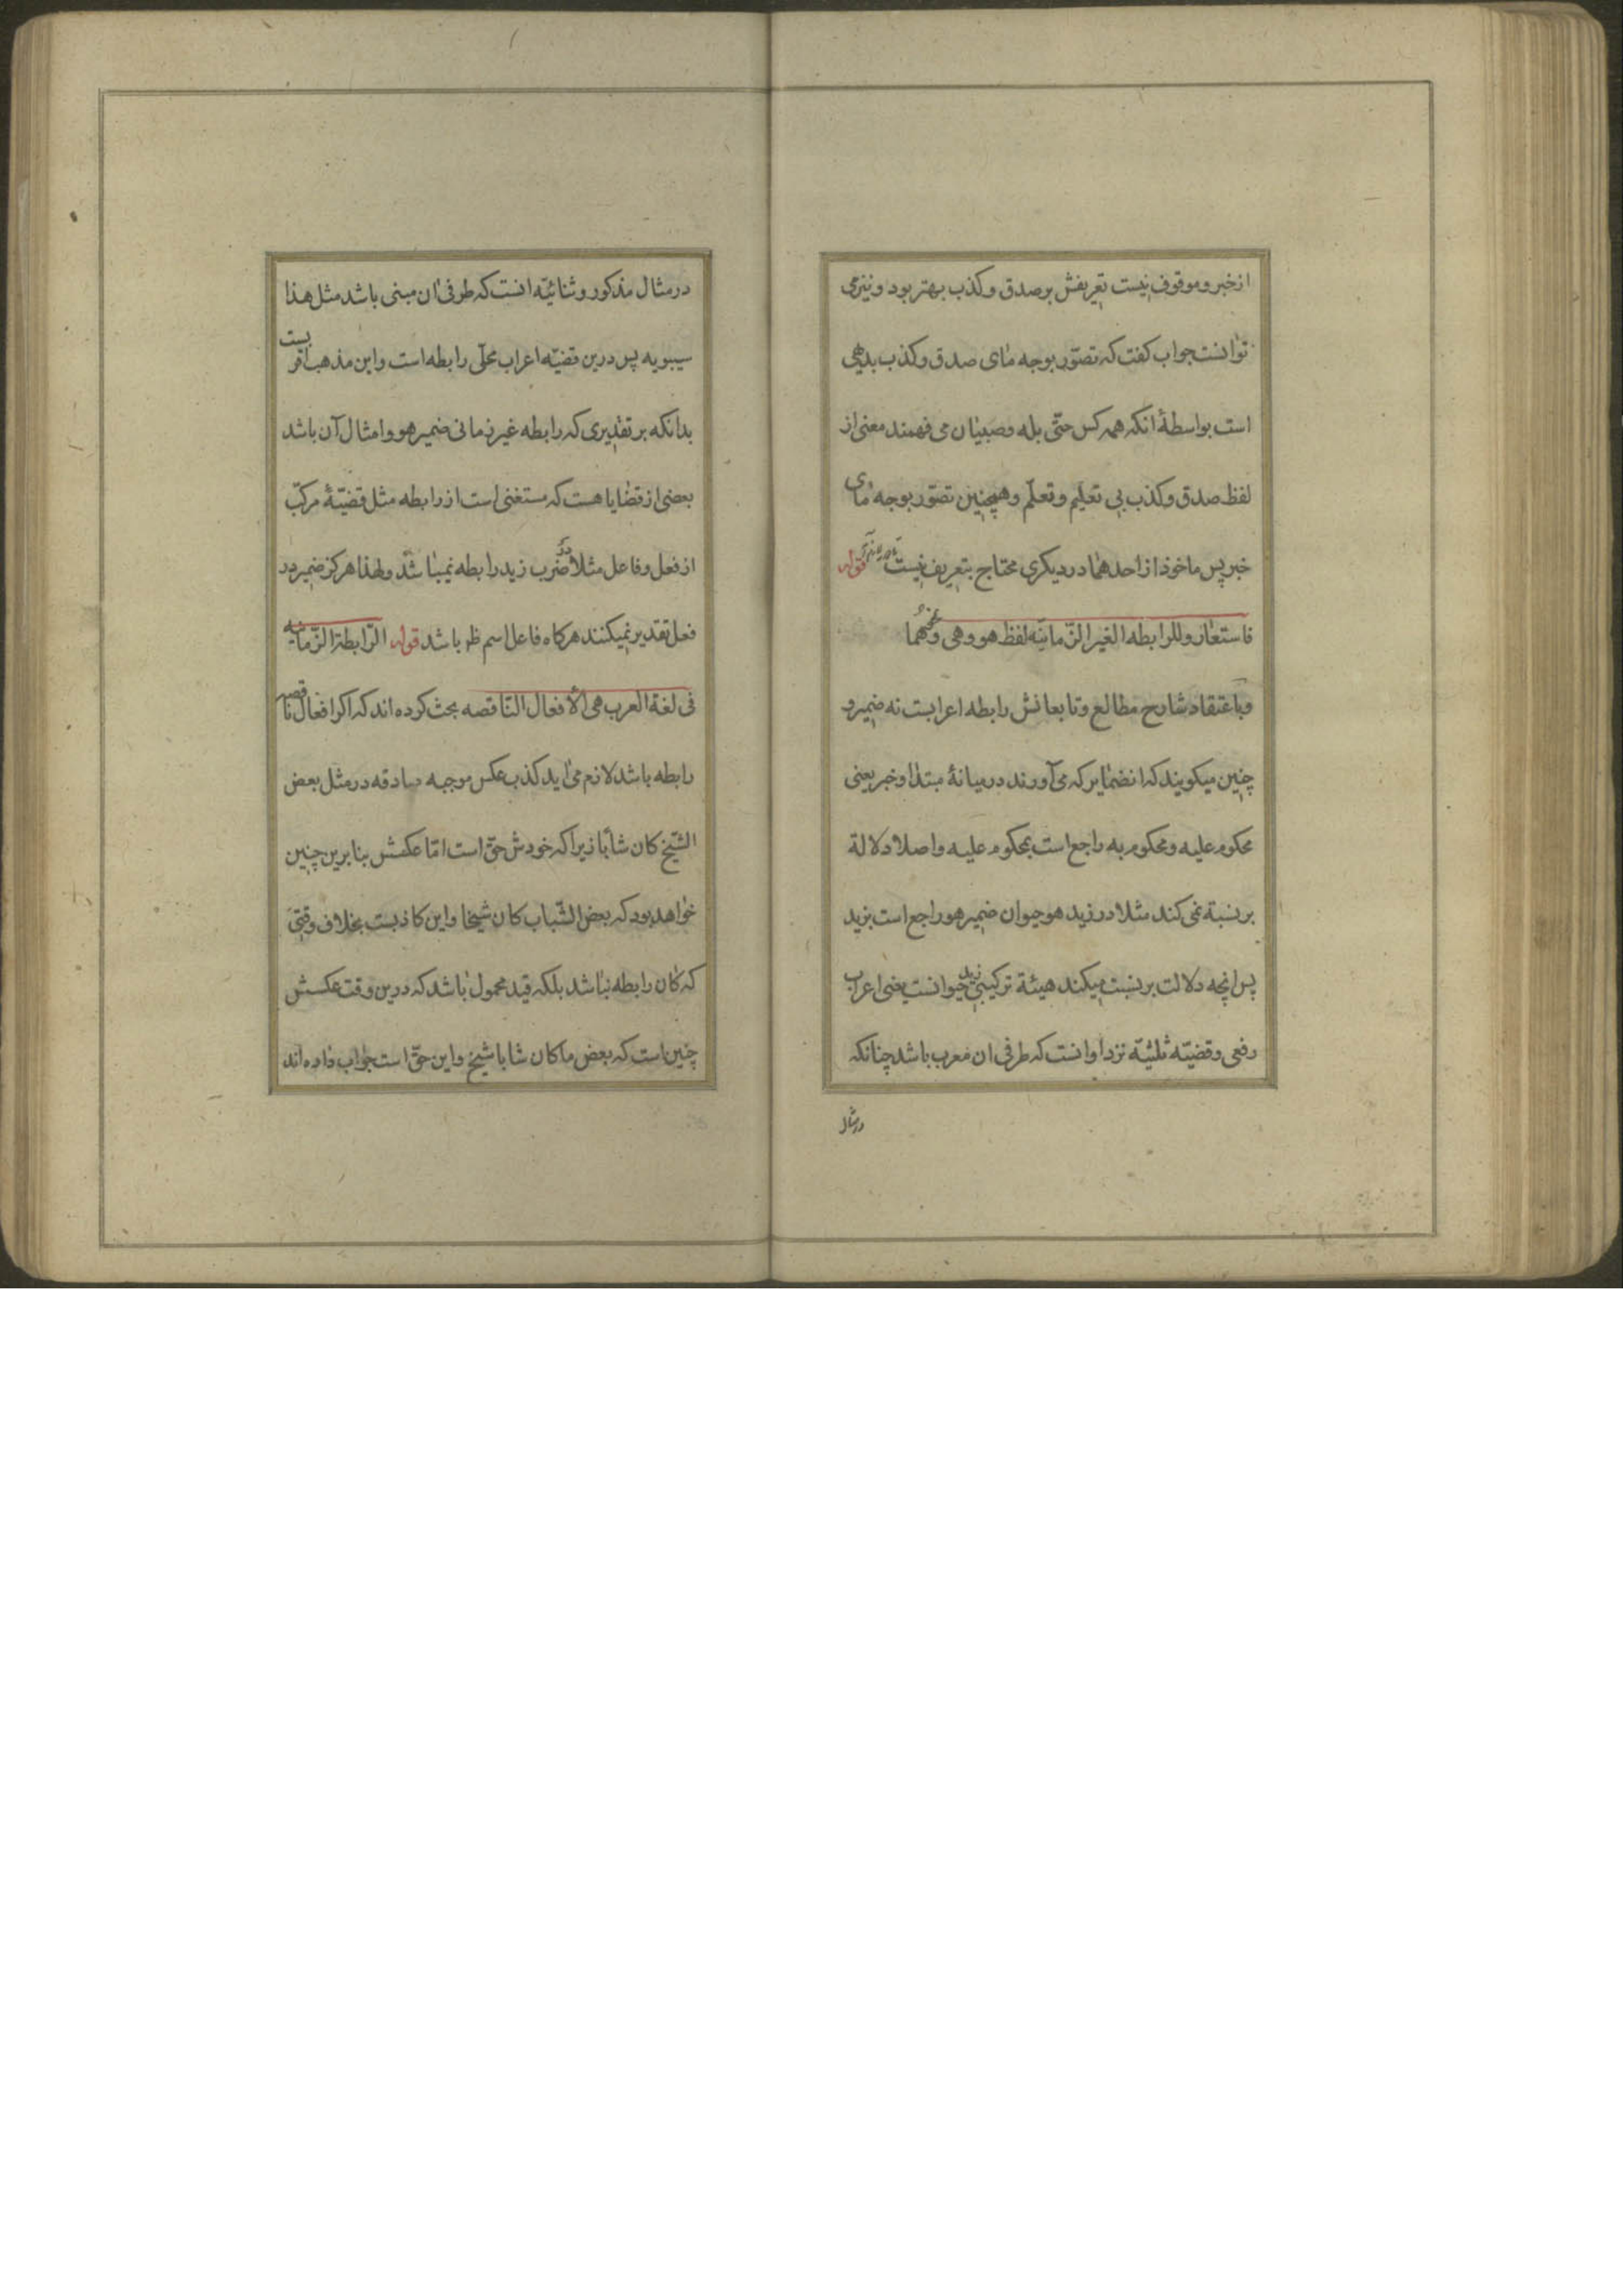 از خبر و موقوف نیست تعریفش بر صدق و کذب بهتر بود و نیز می
توانست جواب کفت که تصوّر بوجه مٰای صدق و کذب بدیهی
است بواسطهٔ انکه همه کس حتّی بله و صبیٰان می فهمند معنی از
لفظ صدق و کذب بی تعلیم و تعلّم و همچنین تصوّر بوجه مٰای
خبر پس ماخوذ از احدهمٰا در دیکری محتاج بتعریف نیست قوله
فاستعٰار و للرابطه الغیر الزّمانیّه لفظ هو و هی و نحوهُما
و باعتقاد شارح مطالع و تابعانش رابطه اعرابست نه ضمیر و
چنین میکویند که انضمٰایر که می‌آورند در میانهٔ مبتدٰا و خبر یعنی
محکوم علیه و محکوم به راجع است بمحکوم علیه و اصلا دلالة
بر نسبة نمی کند مثلا در زید هو حیوان ضمیر هو راجع است بزید
پس انچه دلالت بر نسبت میکند هیئة ترکیبی زید حیوانست یعنی اعراب
رفعی و قضیّه ثلثیّه نزد او انست که طرفی ان معرب باشد چنانکه
در مثال
در مثال مذکور و ثنائیّه انست که طرفی ان مبنی باشد مثل هذا
سیبویه پس درین قضیّه اعراب محلّی رابطه است و این مذهب اقر بست
بدانکه بر تقدیری که رابطه غیر زمانی ضمیر هو و امثال آن باشد
بعضی از قضٰایا هست که مستغنی است از رابطه مثل قضیّهٔ مرکّب
از فعل و فاعل مثلا در ضرب زید رابطه نمیبٰاشد و لهذا هرکز ضمیر در
فعل تقدیر نمیکنند هرکاه فاعل اسم ظ باشد قوله الرّابطة الزّمانیه
فی لغة العرب هی الأفعال النّاقصه بحث کرده اند که اکر افعال ناقصه
رابطه باشد لازم می‌اید کذب عکس موجبه صادقه در مثل بعض
الشّیخ کان شابّا زیرا که خودش حقّ است امّا عکسش بنا برین چنین
خواهد بود که بعض الشّباب کان شیخا و این کاذبست بخلاف وقتی
که کان رابطه نبٰاشد بلکه قید محمول بٰاشد که درین وقت عکسش
چنین است که بعض ما کان شابا شیخ و این حقّ است جواب داده اند